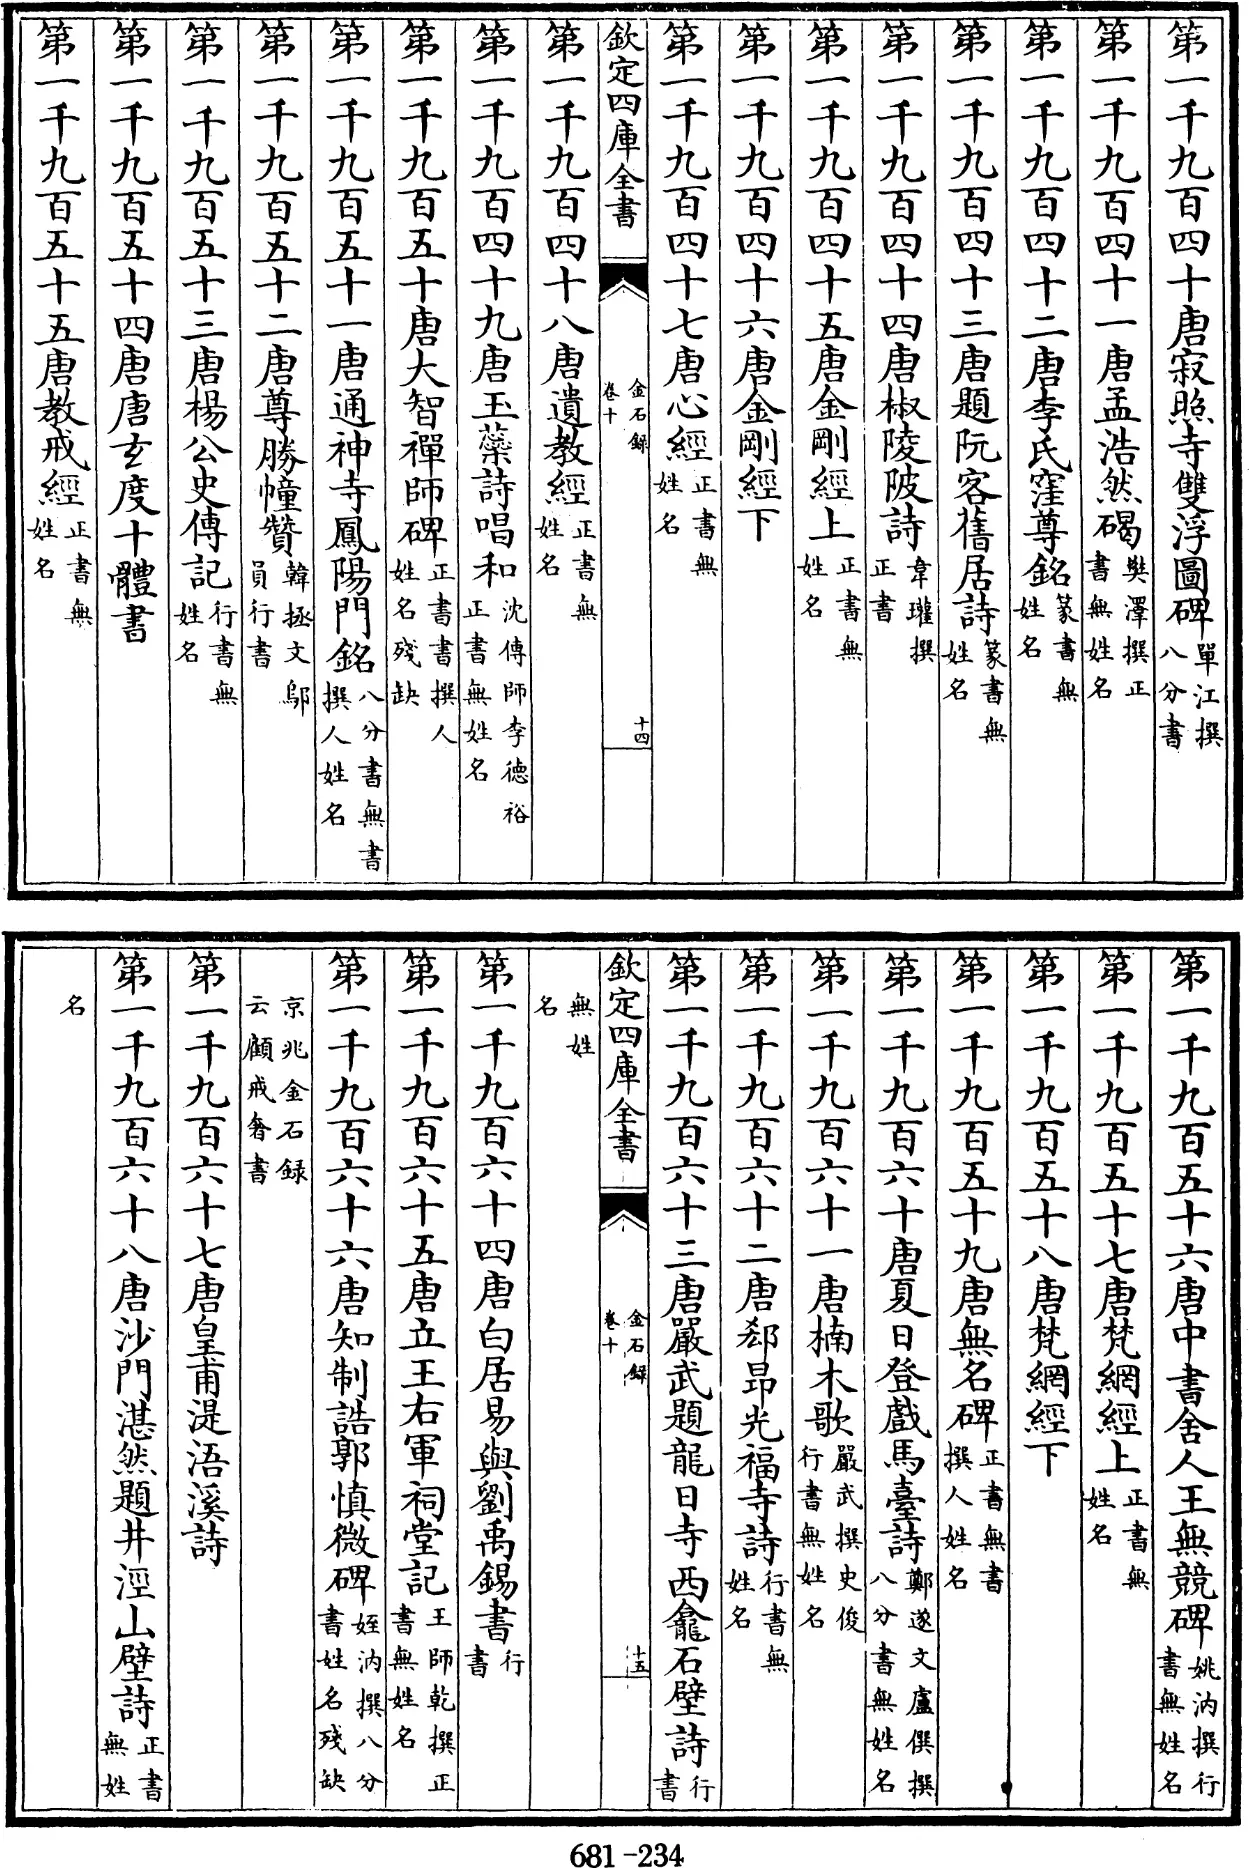 第一千九百四十唐寂照寺雙浮圖碑單江撰八分書
第一千九百四十一唐孟浩然碣樊澤撰正書無姓名
第一千九百四十二唐李氏窪尊銘篆書無姓名
第一千九百四十三唐題阮客舊居詩篆書無姓名
第一千九百四十四唐椒陵陂詩韋瓘撰正書
第一千九百四十五唐金剛經上正書無姓名
第一千九百四十六唐金剛經下
第一千九百四十七唐心經正書無姓名
欽定四庫全書 金石錄卷十 十四
第一千九百四十八唐遺教經正書無姓名
第一千九百四十九唐玉蘂詩唱和沈傳師李德裕正書無姓名
第一千九百五十唐大智禪師碑正書書撰人姓名殘缺
第一千九百五十一唐通神寺鳳陽門銘八分書無書撰人姓名
第一千九百五十二唐尊勝幢贊韓拯文鄔員行書
第一千九百五十三唐楊公史傳記行書無姓名
第一千九百五十四唐唐玄度十體書
第一千九百五十五唐教戒經正書無姓名
第一千九百五十六唐中書舍人王無競碑姚汭撰行書無姓名
第一千九百五十七唐梵網經上正書無姓名
第一千九百五十八唐梵網經下
第一千九百五十九唐無名碑正書無書撰人姓名
第一千九百六十唐夏日登戲馬臺詩鄭遂文盧僎撰八分書無姓名
第一千九百六十一唐楠木歌嚴武撰史俊行書無姓名
第一千九百六十二唐郄昂光福寺詩行書無姓名
第一千九百六十三唐嚴武題龍日寺西龕石壁詩行書
欽定四庫全書 金石錄卷十 十五
無姓名
第一千九百六十四唐白居易與劉禹錫書行書
第一千九百六十五唐立王右軍祠堂記王師乾撰正書無姓名
第一千九百六十六唐知制誥郭慎微碑姪汭撰八分書姓名殘缺
京兆金石録云顧戒奢書
第一千九百六十七唐皇甫湜浯溪詩
第一千九百六十八唐沙門湛然題井涇山壁詩正書無姓
名
681-234